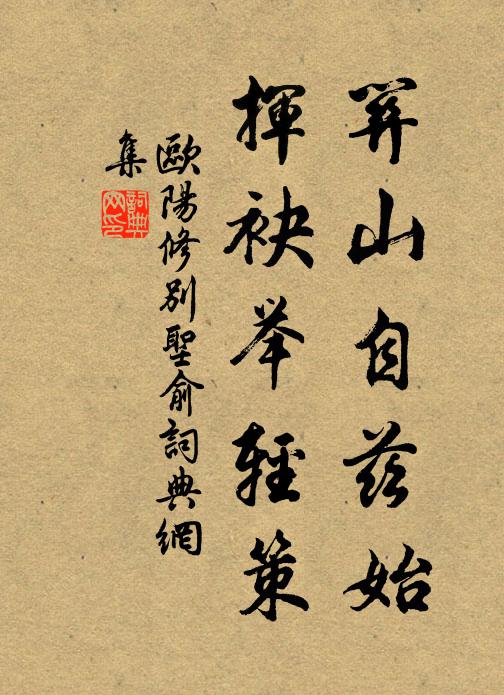 关山自茲始
揮袂举輕策
歐陽修別聖俞詞典網
集
詞典网印